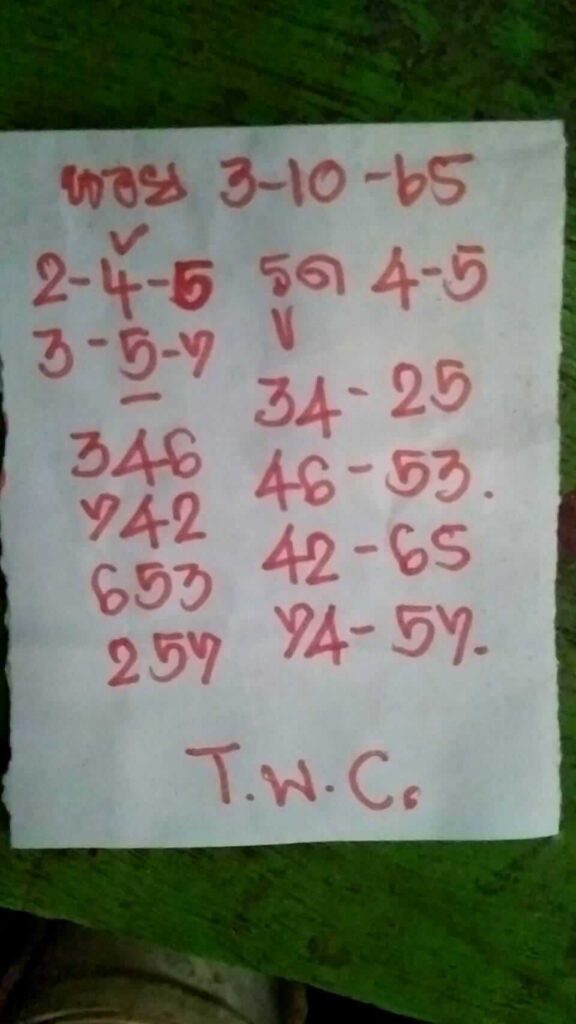 หวย 3-10-65
2-4-5 รูด 4-5
3-5-7
34-25
346 46-53.
742 42-65
653 74-57.
257
T.W.C.